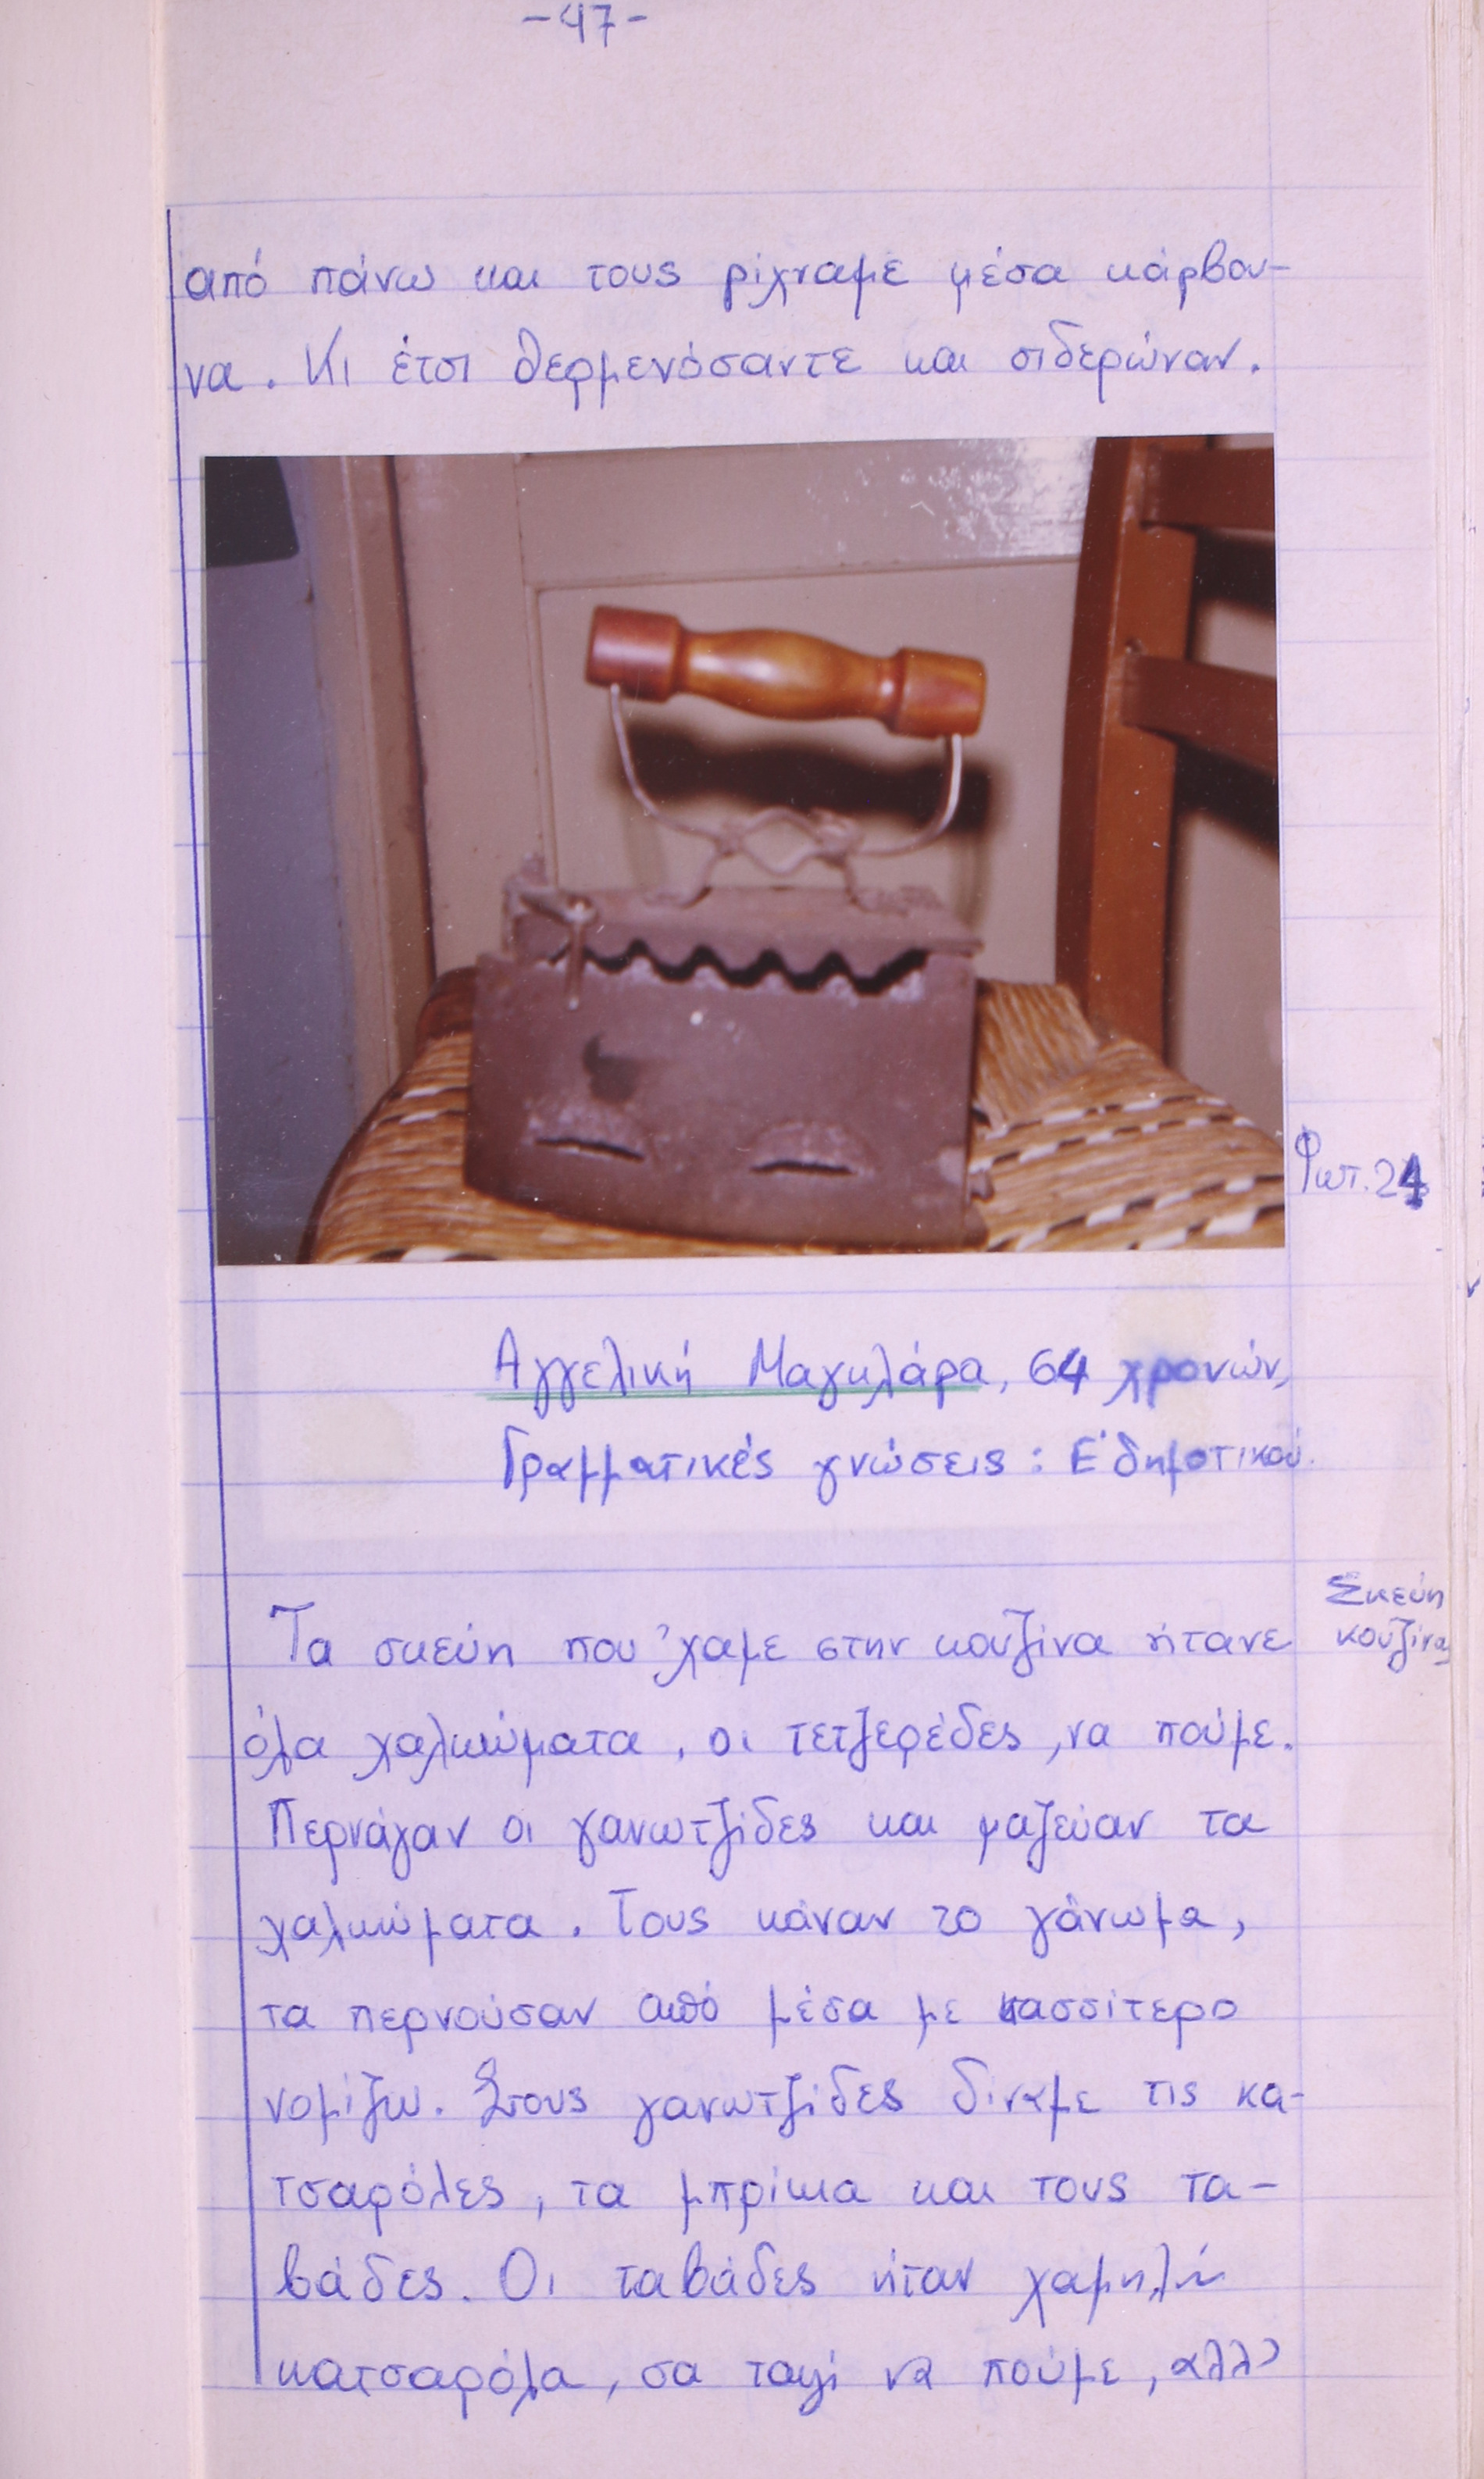 -47-
από πάνω και τους ρίχναμε μέσα κάρβου-
να. Κι έτσι θερμενόσαντε και σιδερώναν.
Φωτ. 24
Αγγελική Μαγκλάρα, 64 χρονών,
Γραμματικές γνώσεις: Ε' δημοτικού.
Σκεύη
κουζίνας
Τα σκεύη που 'χαμε στην κουζίνα ήτανε
όλα χαλκώματα, οι τετζερέδες, να πούμε.
Περνάγαν οι γανωτζίδες και μαζεύαν τα
χαλκώματα. Τους κάναν το γάνωμα,
τα περνούσαν από μέσα με κασσίτερο
νομίζω. Στους γανωτζίδες δίναμε τις κα-
τσαρόλες, τα μπρίκια και τους τα-
βάδες. Οι ταβάδες ήταν χαμηλή
κατσαρόλα, σα ταψί να πούμε, αλλ'